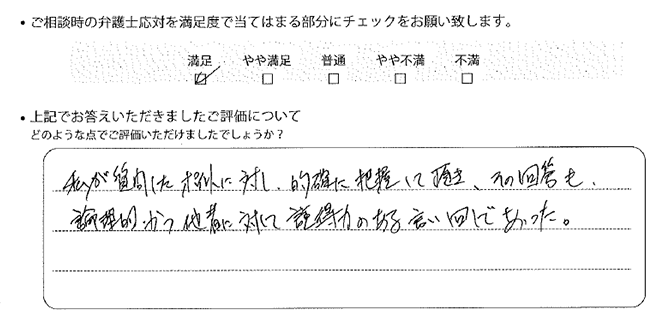 ・ご相談時の弁護士応対を満足度で当てはまる部分にチェックをお願い致します。
満足 やや満足 普通 やや不満 不満
・上記でお答えいただきましたご評価について
どのような点でご評価いただけましたでしょうか？
私が質問した に対し、的確に把握して頂き、その回答も、
論理的かつ他者に対して説得力のある言い回しであった。